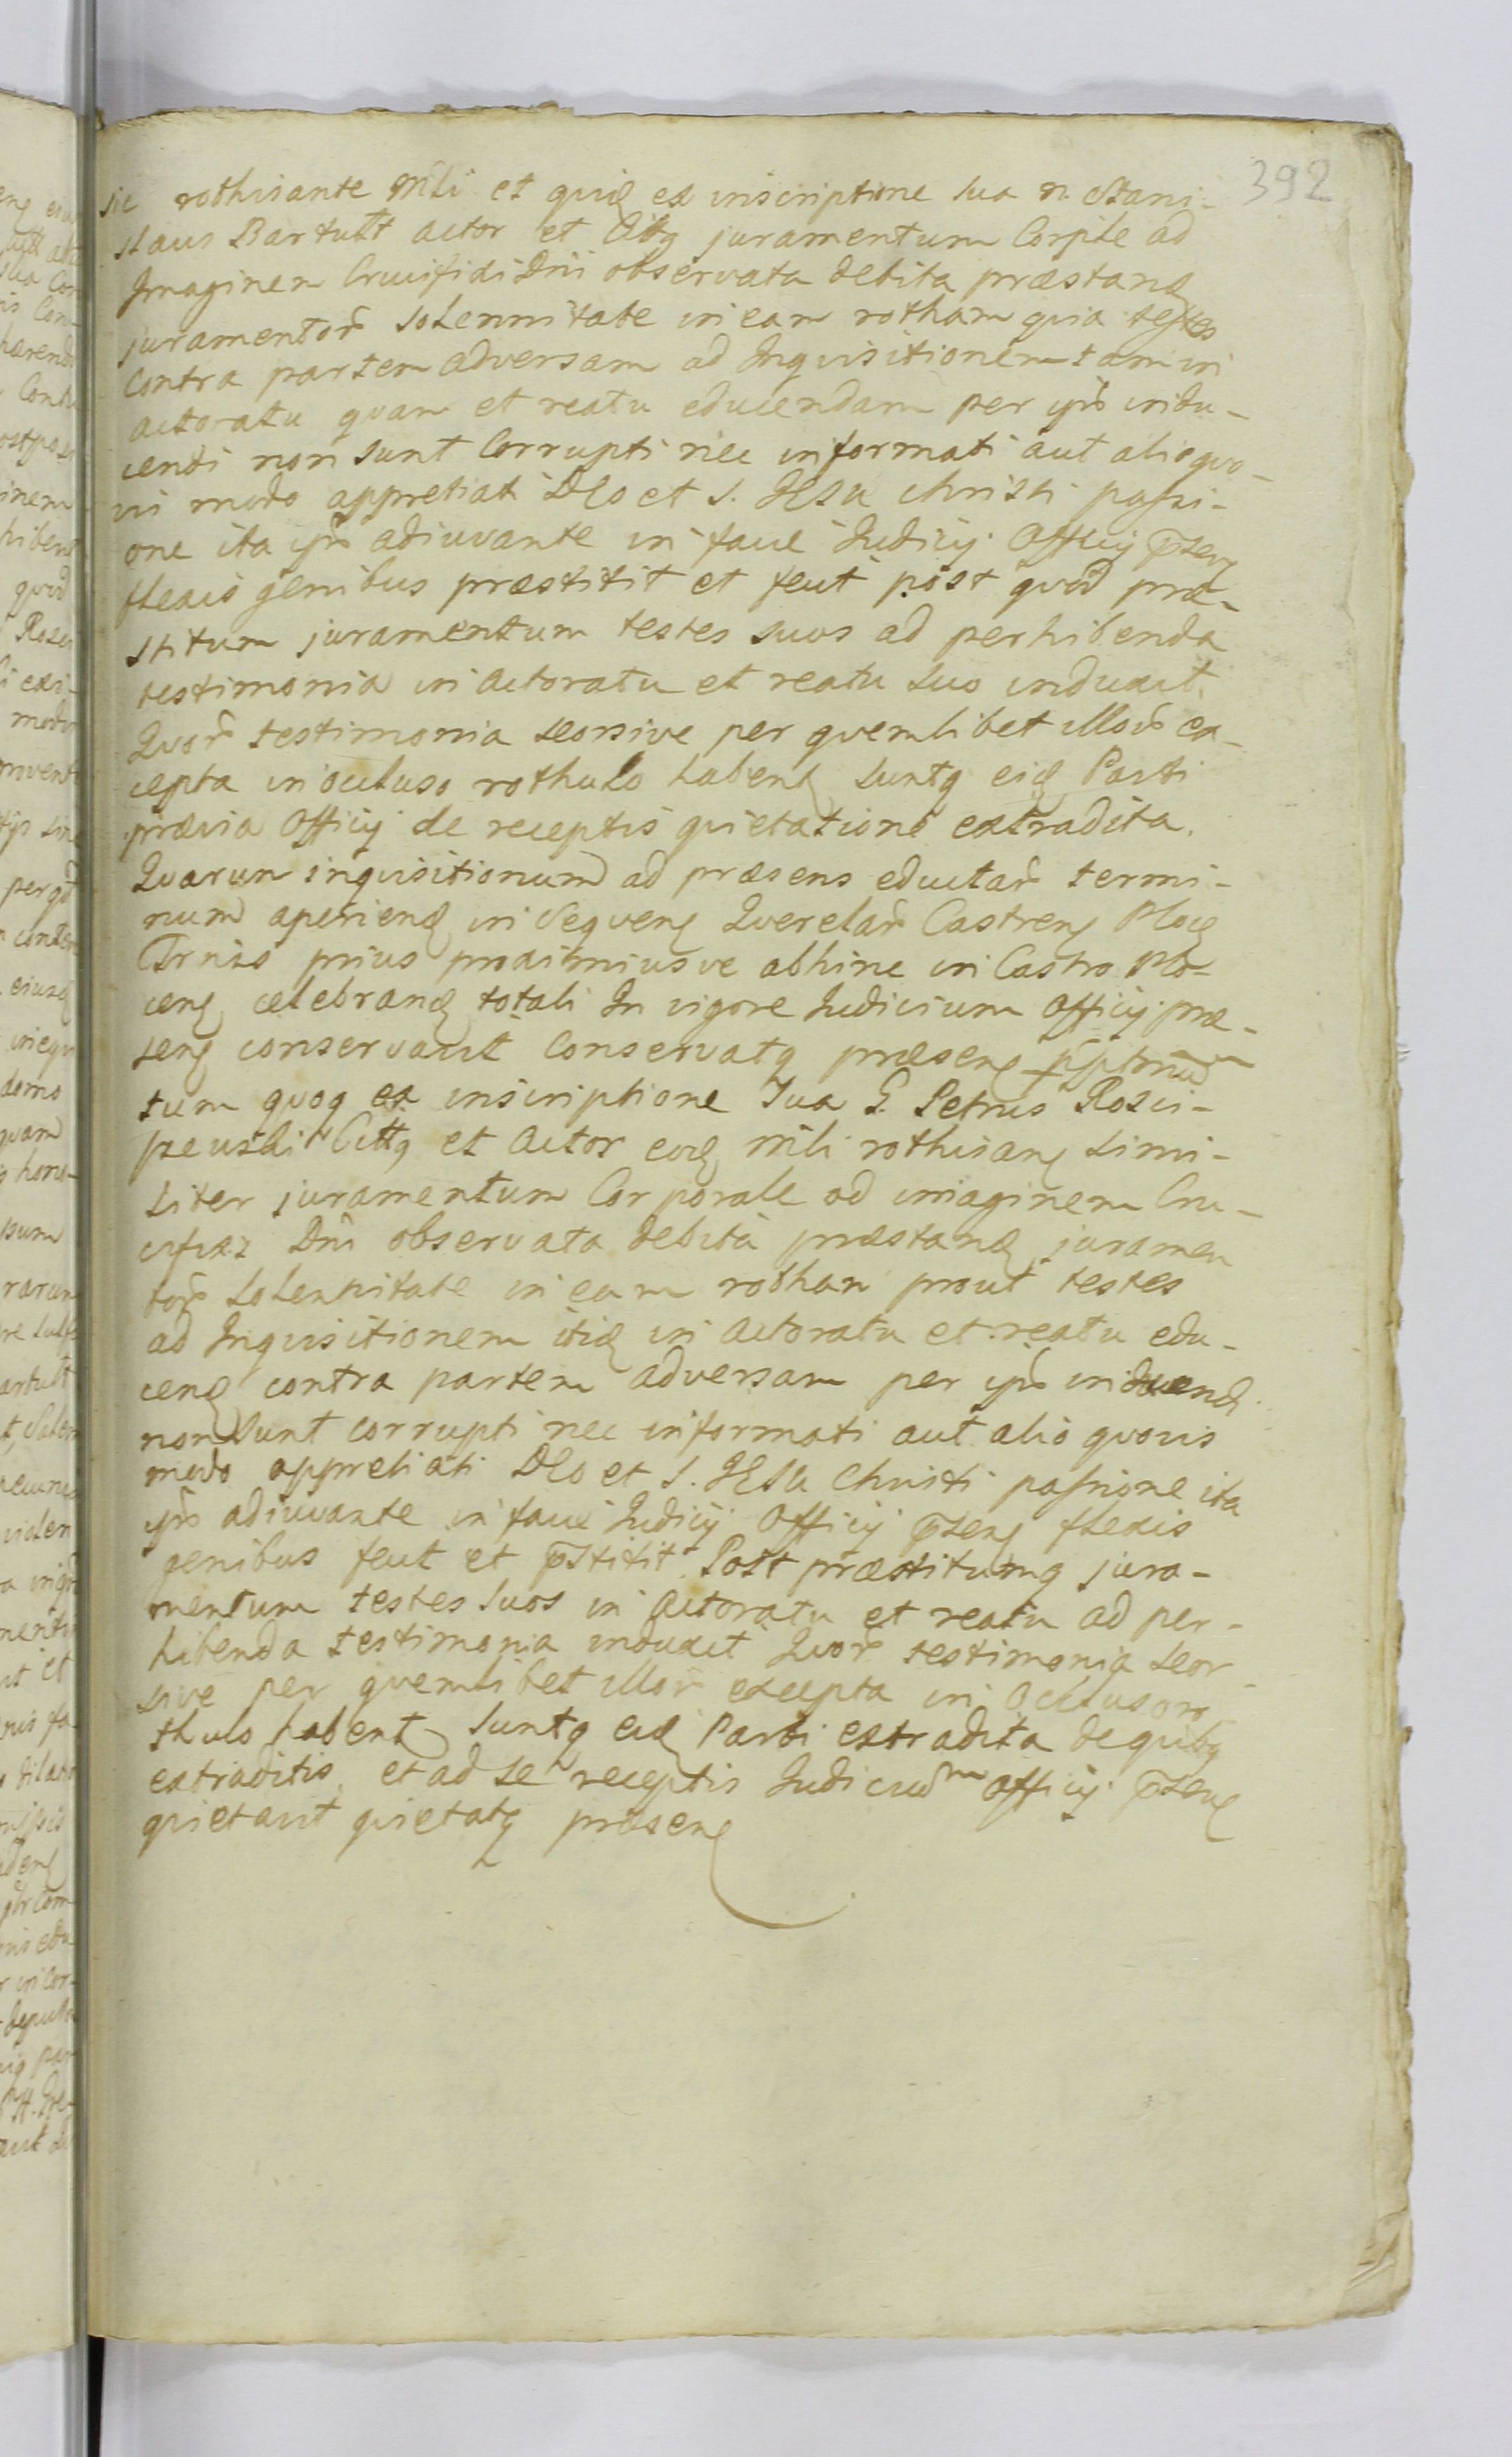 392
sic rothisante Mli et quid ex inscriptione sua n. Stani-
slaus Bartult actor et Citq juramentum Corple ad
Imaginem Crucifixi Dni observata debita præstand
juramentor solennitate in eam rotham quia testes
contra partem adversam ad Inquisitionem tam in
actoratu quam et reatu educendam per ips indu-
cendi non sunt Corrupti nec informati aut alio quo-
vis modo appretiati DEo et S. JEsu Christi passi-
one ita ips adiuvante in facie Judicij Officij psens
flexis genibus præstitit et fecit post quod præ-
stitum juramentum testes suos ad perhibenda
testimonia in Actoratu et reatu suo induxit.
Quor testimonia seorsive per quemlibet illor ex-
cepta in occluso rothulo habent suntq eid Parti
prævia Officij de receptis quietatione extradita.
Quarum inquisitionum ad præsens eductar termi-
num aperiend in Sequen Querelar Castren Ploc
Trnis prius proximiusve abhinc in Castro Plo-
cen celebrand totali In vigore Judicium Officij præ-
sens conservavit Conservatq præsens
tum quoq ex inscriptione sua G. Petrus Rosci-
szewski Cittq et Actor eod Mli rothisan simi-
liter juramentum Corporale ad imaginem Cru-
cifixi Dni observata debita præstand juramen
tor solennitate in eam rotham prout testes
ad Inquisitionem itid in Actoratu et reatu edu-
cend contra partem adversam per ips inducend
non sunt corrupti nec informati aut alio quovis
modo appretiati DEo et S. JEsu Christi passione ita
ips adiuvante in facie Judicij Officij psens flexis
genibus fecit et pstitit. Post præstitumq jura-
mentum testes suos in Actoratu et reatu ad per-
hibenda testimonia induxit Quor testimonia seor
sive per quemlibet illor excepta in Occluso ro
thulo habent suntq eid Parti extradita de quibq
extraditis et ad se receptis Judicium Officij psens
quietavit quietatq præsens